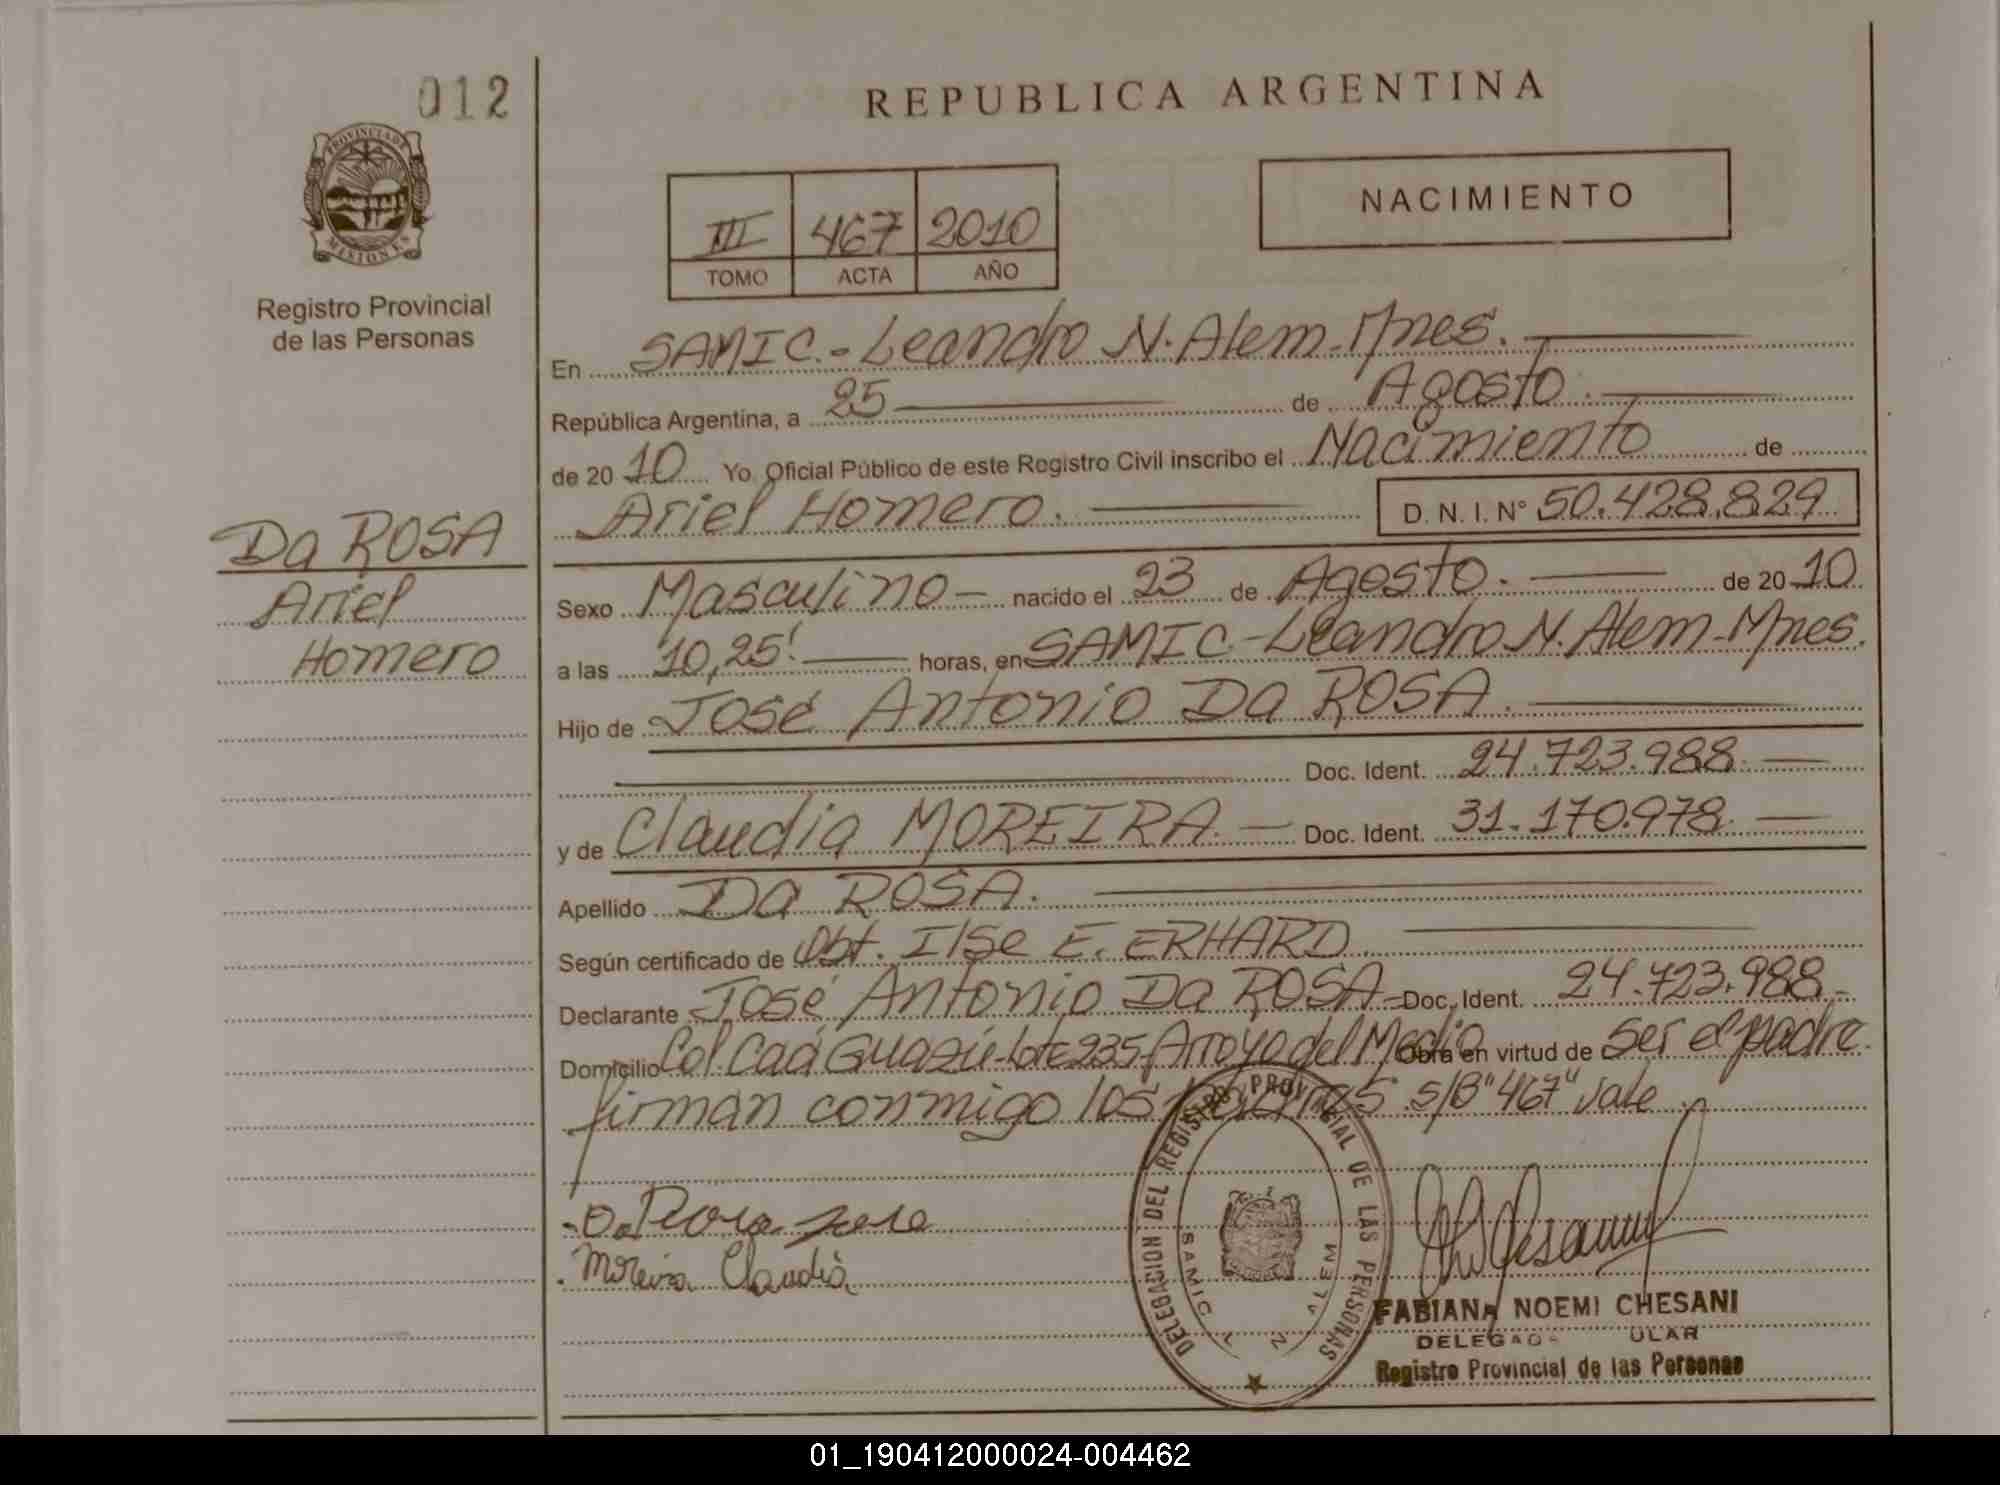 012
REPUBLICA ARGENTINA
PROVINCIA DE
MISIONES
Registro Provincial
de las Personas
III 467 2010
TOMO ACTA AÑO
NACIMIENTO
En SAMIC.- Leandro N. Alem - Mnes.
República Argentina, a 25 de Agosto.
de 20 10 Yo Oficial Público de este Registro Civil inscribo el Nacimiento de
Ariel Homero. D. N. I. N° 50.428.829
Da ROSA
Ariel
Homero
Sexo Masculino - nacido el 23 de Agosto. de 20 10
a las 10,25' horas, en SAMIC - Leandro N. Alem - Mnes.
Hijo de José Antonio Da ROSA.
Doc. Ident. 24.723.988
y de Claudia MOREIRA. Doc. Ident. 31.170.978
Apellido Da ROSA.
Según certificado de Obt. Ilse E. ERHARD
Declarante José Antonio Da ROSA - Doc. Ident. 24.723.988
Domicilio Col. Caá Guazú - Lote 235 - Arroyo del Medio Obra en virtud de ser el padre.
firman conmigo los s/B "467" vale
Da Rosa Jose
Moreira Claudia
DELEGACION DEL REGISTRO PROVINCIAL DE LAS PERSONAS
SAMIC L N ALEM
FABIANA NOEMI CHESANI
Registro Provincial de las Personas
01_190412000024-004462